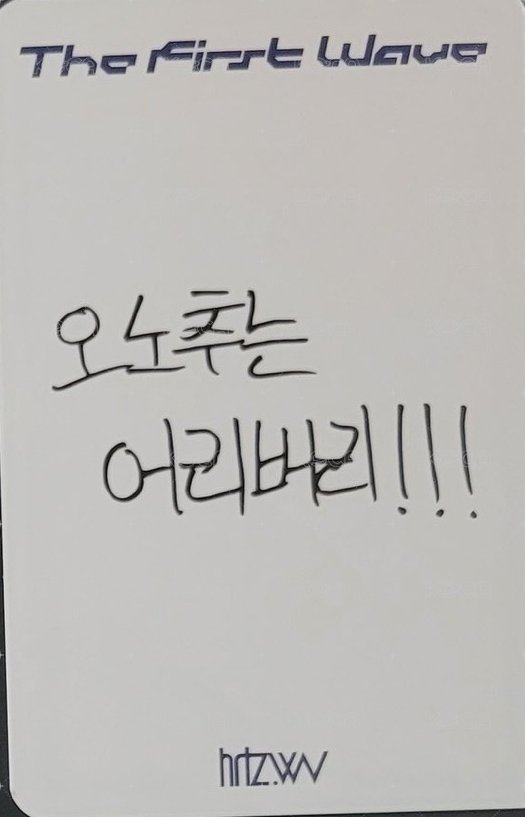 The First Wave
오노추는
어리버리!!!
hrtz.wav